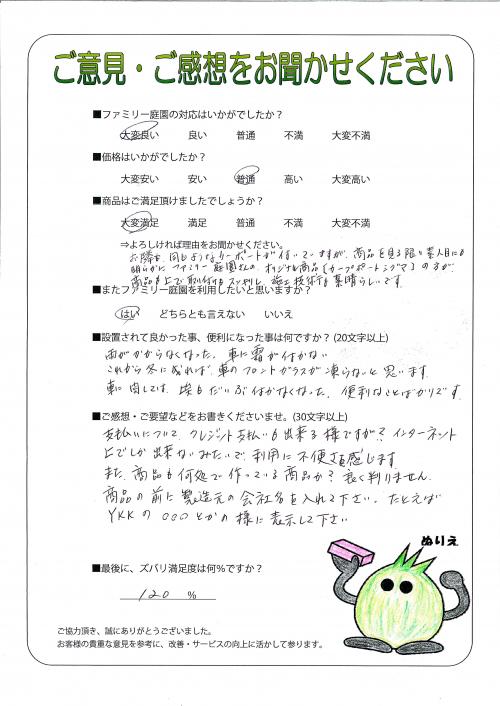 ご意見・ご感想をお聞かせください
■ファミリー庭園の対応はいかがでしたか？
大変良い 良い 普通 不満 大変不満
■価格はいかがでしたか？
大変安い 安い 普通 高い 大変高い
■商品はご満足頂けましたでしょうか？
大変満足 満足 普通 不満 大変不満
⇒よろしければ理由をお聞かせください。
お隣も、同じようなカーポートが付いていますが、商品を見る限り素人目にも
明らかに ファミリー庭園さんの、オリジナル商品(カーポートシグマ)のが、
商品も上で取付もスッキリし、施工技術も素晴らしいです。
■またファミリー庭園を利用したいと思いますか？
はい どちらとも言えない いいえ
■設置されて良かった事、便利になった事は何ですか？(20文字以上)
雨がかからなくなった。車に霜が付かない
これから冬になれば、車のフロントガラスが凍らないと思います。
車に関しては、埃もだいぶ付かなくなった。便利なことばかりです。
■ご感想・ご要望などをお書きくださいませ。(30文字以上)
支払いについて、クレジット支払いも出来る様ですが？インターネット
上でしか出来ないみたいで、利用に不便さを感じます
また、商品も何処で作っている商品か？良く判りません。
商品の前に製造元の会社名を入れて下さい。たとえば
YKKの ○○○とかの様に表示して下さい
ぬりえ
■最後に、ズバリ満足度は何%ですか？
120 %
ご協力頂き、誠にありがとうございました。
お客様の貴重な意見を参考に、改善・サービスの向上に活かして参ります。